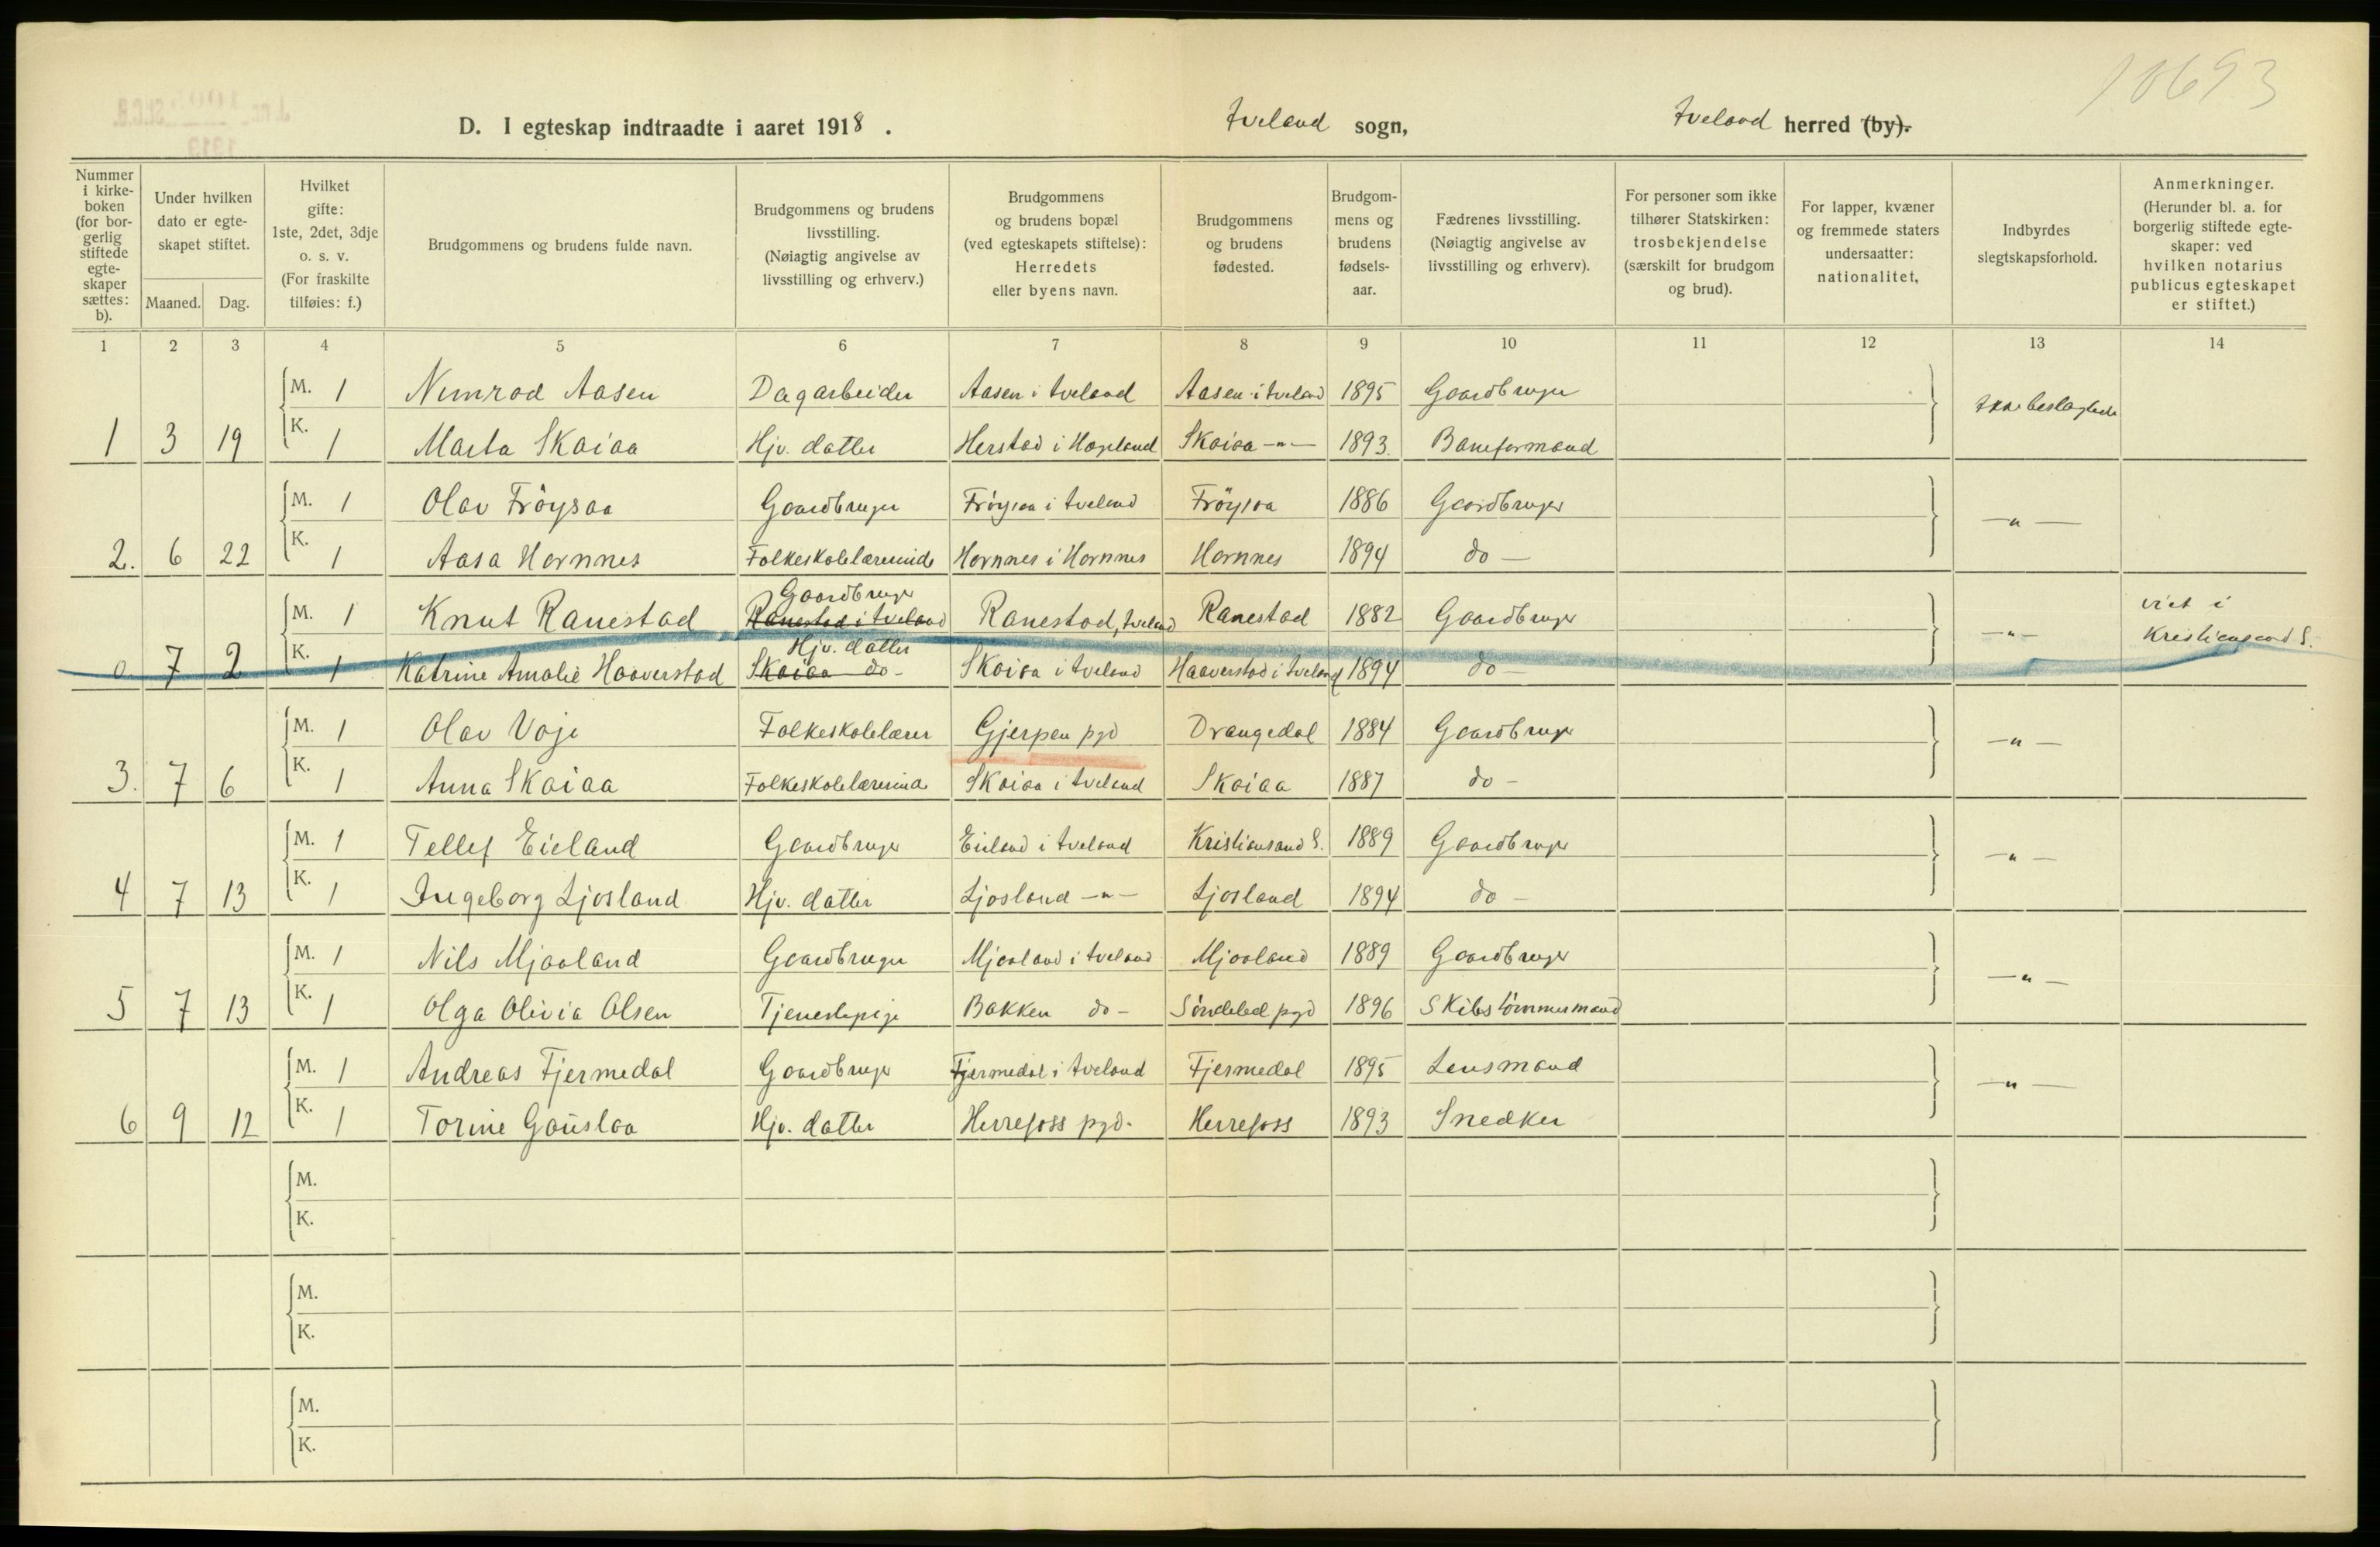 10693
D. I egteskap indtraadte i aaret 1918. Iveland sogn, Iveland herred (by).
Nummer i kirkeboken (for borgerlig stiftede egteskaper sættes: b).
Under hvilken dato er egteskapet stiftet.
Maaned. Dag.
Hvilket gifte: 1ste, 2det, 3dje o. s. v. (For fraskilte tilføies: f.)
Brudgommens og brudens fulde navn.
Brudgommens og brudens livsstilling. (Nøiagtig angivelse av livsstilling og erhverv.)
Brudgommens og brudens bopæl (ved egteskapets stiftelse): Herredets eller byens navn.
Brudgommens og brudens fødested.
Brudgommens og brudens fødselsaar.
Fædrenes livsstilling. (Nøiagtig angivelse av livsstilling og erhverv).
For personer som ikke tilhører Statskirken: trosbekjendelse (særskilt for brudgom og brud).
For lapper, kvæner og fremmede staters undersaatter: nationalitet.
Indbyrdes slegtskapsforhold.
Anmerkninger. (Herunder bl. a. for borgerlig stiftede egteskaper: ved hvilken notarius publicus egteskapet er stiftet.)
1 2 3 4 5 6 7 8 9 10 11 12 13 14
M. 1 Nimrod Aasen Dagarbeider Aasen i Iveland Aasen i Iveland 1895 Gaardbruger beslagtede
1 3 19 K. 1 Marta Skaiaa Hjv. datter Herstad i Hægeland Skaiaa -"- 1893. Baneformand
M. 1 Olav Fröysaa Gaardbruger Fröysaa i Iveland Fröysaa 1886 Gaardbruger -"-
2. 6 22 K. 1 Aasa Hornnes Folkeskolelærerinde Hornnes i Hornnes Hornnes 1894 do -
Gaardbruger
M. 1 Knut Ranestad Ranestad i Iveland Ranestad, Iveland Ranestad 1882 Gaardbruger -"- viet i Kristiansand S.
Hjv. datter
0. 7 2 K. 1 Katrine Amalie Haaverstad Skaiaa do - Skaiaa i Iveland Haaverstad i Iveland 1894 do -
M. 1 Olav Voje Folkeskolelærer Gjerpen pgd Drangedal 1884 Gaardbruger -"-
3. 7 6 K. 1 Anna Skaiaa Folkeskolelærerinde Skaiaa i Iveland Skaiaa 1887 do -
M. 1 Tellef Eieland Gaardbruger Eieland i Iveland Kristiansand S. 1889 Gaardbruger -"-
4 7 13 K. 1 Ingeborg Ljosland Hjv. datter Ljosland -"- Ljosland 1894 do -
M. 1 Nils Mjaaland Gaardbruger Mjaaland i Iveland Mjaaland 1889 Gaardbruger -"-
5 7 13 K. 1 Olga Olivia Olsen Tjenestepige Bakken do - Söndeled pgd 1896 Skibstömmermand
M. 1 Andreas Fjermedal Gaardbruger Fjermedal i Iveland Fjermedal 1895 Lensmand -"-
6 9 12 K. 1 Torine Gauslaa Hjv. datter Herrefoss pgd. Herrefoss 1893 Snedker
M.
K.
M.
K.
M.
K.